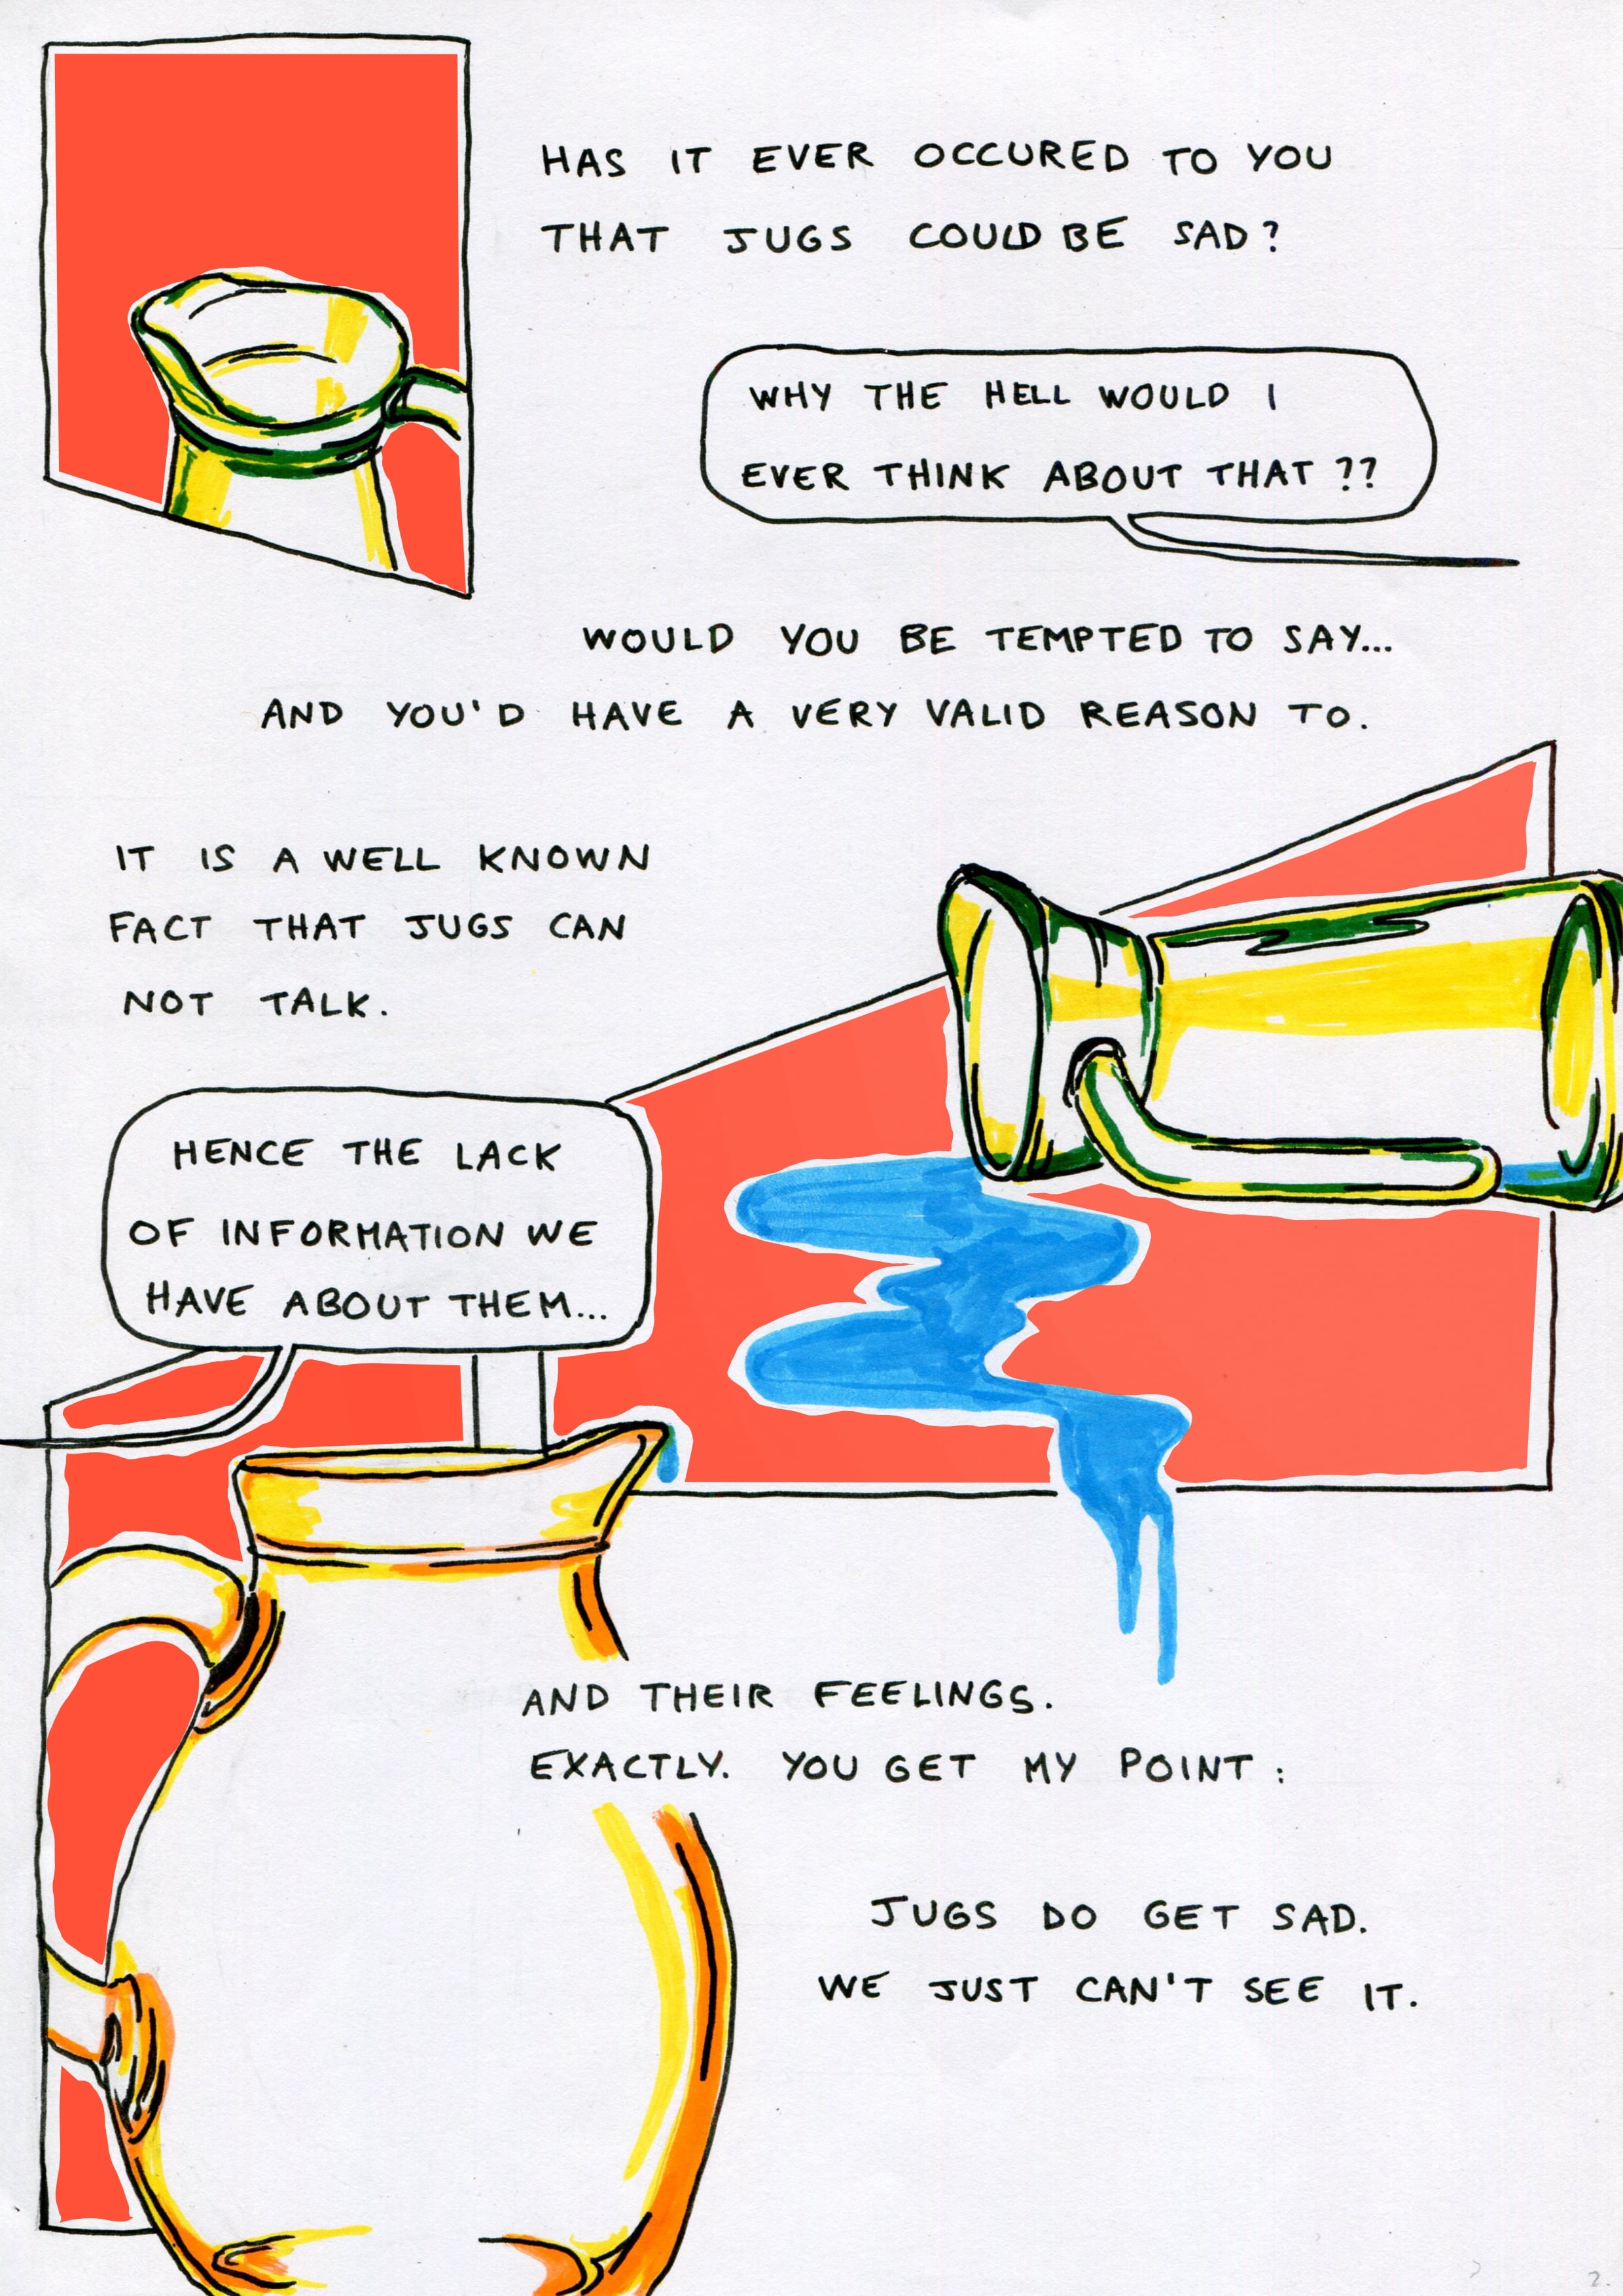 HAS IT EVER OCCURED TO YOU
THAT JUGS COULD BE SAD?
WHY THE HELL WOULD I
EVER THINK ABOUT THAT ??
WOULD YOU BE TEMPTED TO SAY...
AND YOU'D HAVE A VERY VALID REASON TO.
IT IS A WELL KNOWN
FACT THAT JUGS CAN
NOT TALK.
HENCE THE LACK
OF INFORMATION WE
HAVE ABOUT THEM...
AND THEIR FEELINGS.
EXACTLY. YOU GET MY POINT :
JUGS DO GET SAD.
WE JUST CAN'T SEE IT.